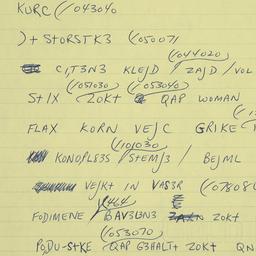 KURC (/043040
)+ STORSTK3 (/050071
(/044020)
CITEN3 KLEJD / ZAJD / VOL
(/051030) (/053040)
STIX ZOKT QAP WOMAN
FLAX KORN VEJC GRIKE
(/101030
KONOPLE3S / STEMJ3 / BEJML
VEJKT IN VAS3R (/07808
/4464
FODIMENE / BAV3LUN3 ZOKT
(/053070)
PODU-STKE QAP G3HALT+ ZOKT QN